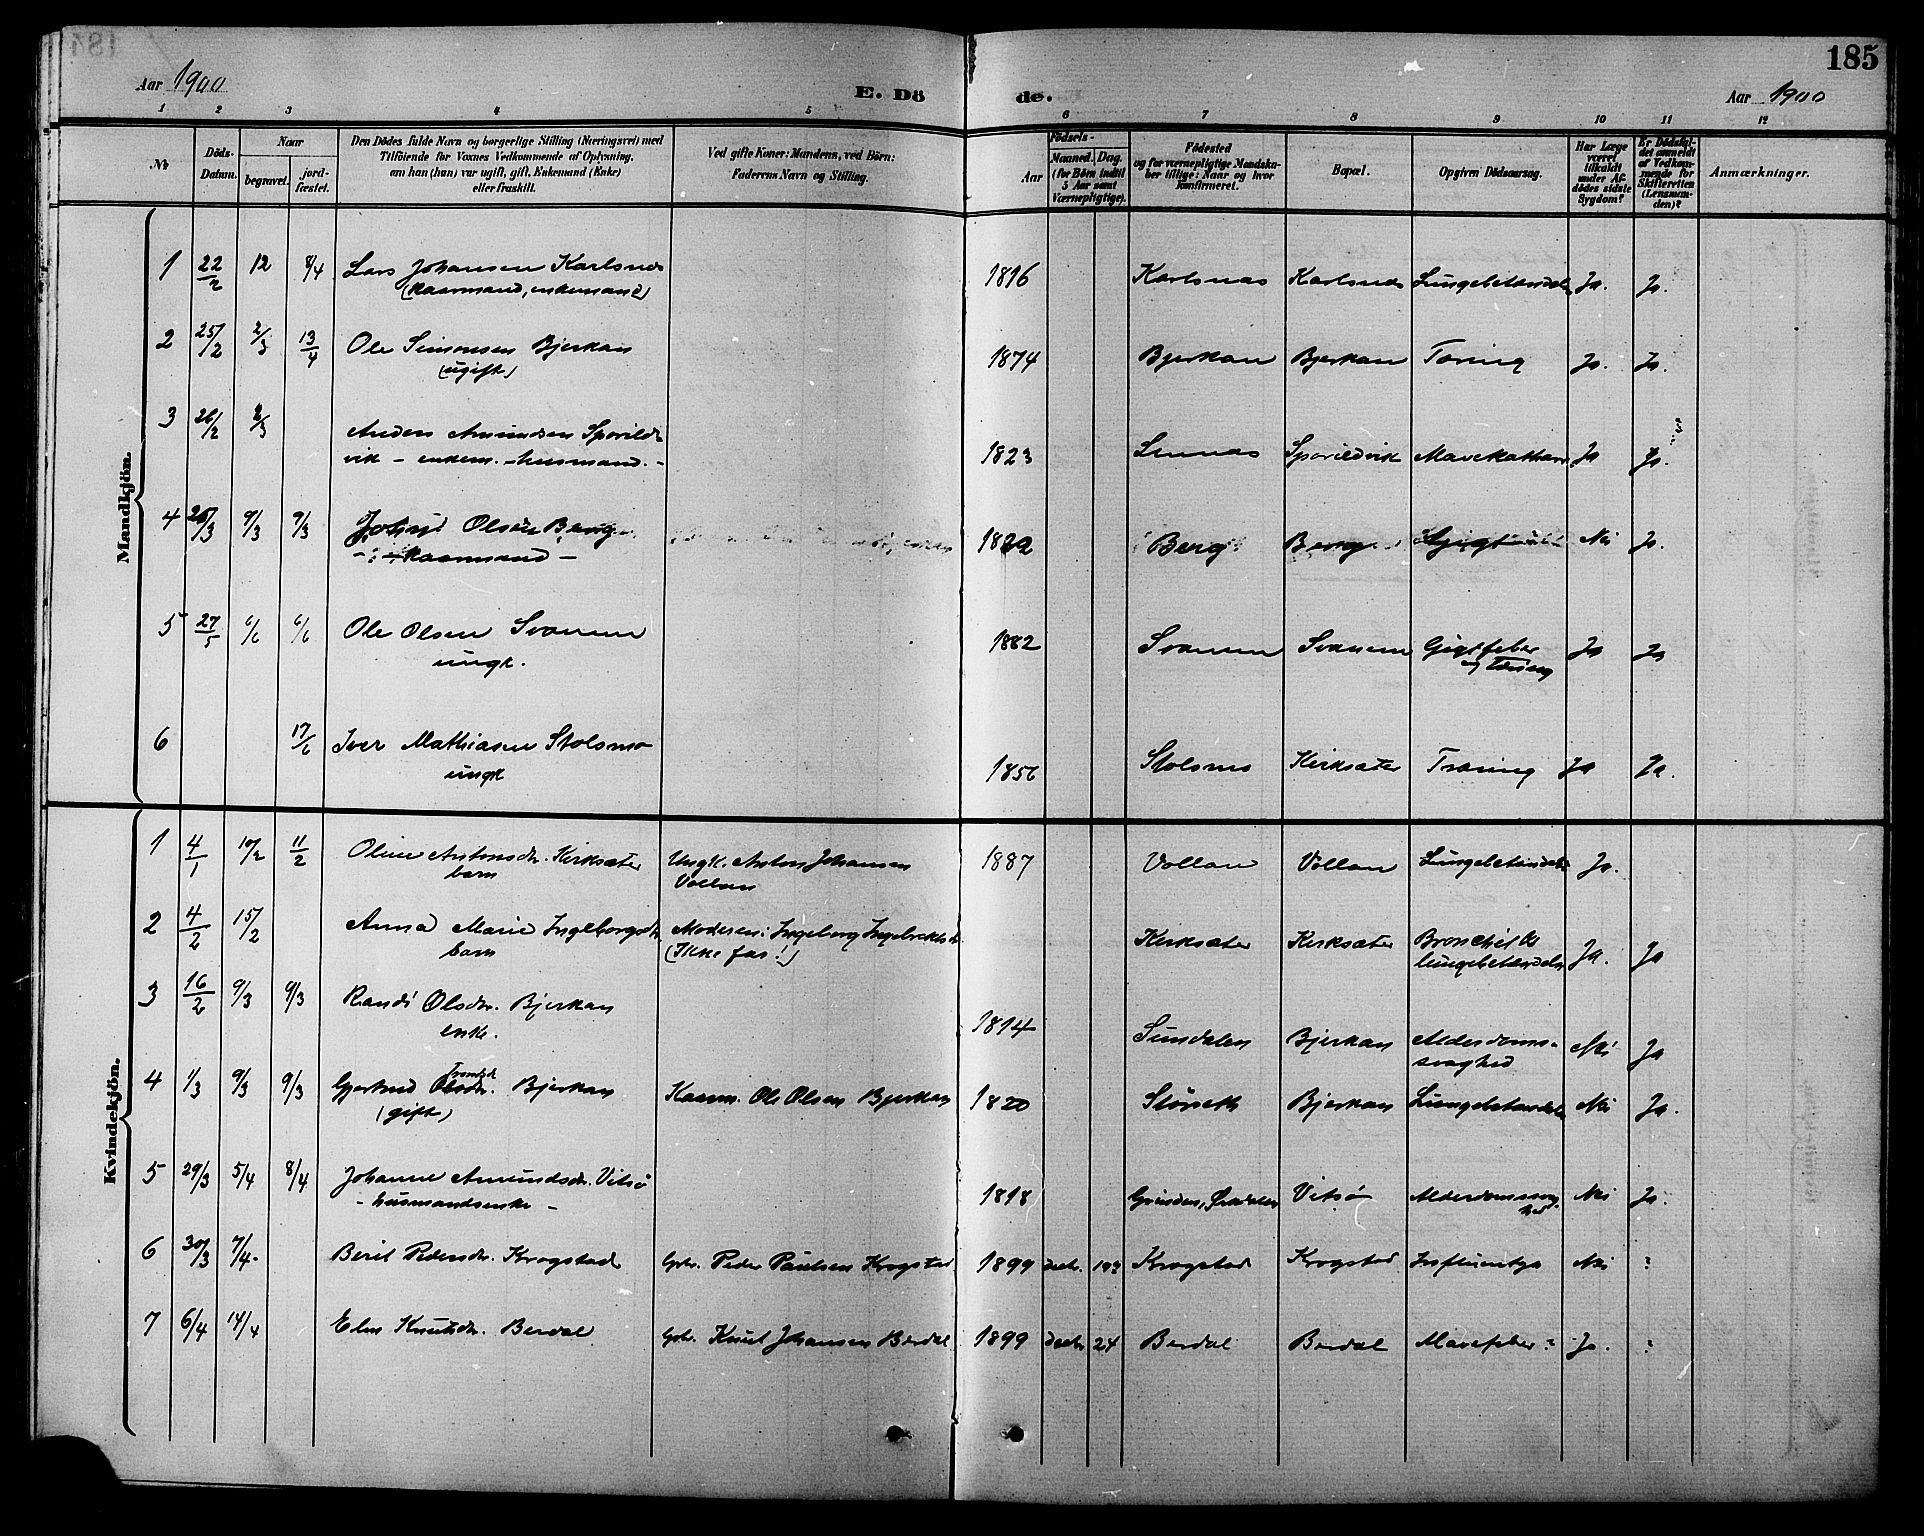 185
Aar 1900
E. Dö
de.
Aar 1900
1 2 3 4 5 6 7 8 9 10 11 12
№
Döds-Datum.
Naar
begravet.
jord-fæstet.
Den Dödes fulde Navn og borgerlige Stilling (Næringsvei) med
Tilföiende for Voxnes Vedkommende af Oplysning,
om han (hun) var ugift, gift, Enkemand (Enke)
eller fraskilt.
Ved gifte Koner: Mandens, ved Börn:
Faderens Navn og Stilling.
Födsels-
Aar
Maaned. Dag.
(for Börn indtil
5 Aar samt
Værnepligtige).
Födested
og for værnepligtige Mandska-
ber tillige: Naar og hvor
konfirmeret.
Bopæl.
Opgiven Dödsaarsag.
Har Læge
været
tilkaldt
under Af-
dödes sidste
Sygdom?
Er Dödsfal-
det anmeldt
af Vedkom-
mende for
Skifteretten
(Lensman-
den)?
Anmærkninger.
Mandkjön.
1 22/2 12 8/4 Lars Johansen Karlsnes 1816 Karlsnas Karlsnes Lungebetændels Ja. Ja.
(kaarmand, enkemand)
2 25/2 2/3 13/4 Ole Simonsen Bjerkan 1874 Bjerkan Bjerkan Tæring Ja. Ja.
(ugift)
3 26/2 2/3 Anders Amundsen Sporild- 1823 Sporildvik Mavekathar Ja Ja.
vik - enkem. - husmand. -
4 9/3 9/3 Olsen Berg Berg Berg Gigt Nei Ja.
- Kaarmand -
5 27/5 6/6 6/6 Ole Olsen Svanem 1882 Svanem Svanem Gigtfeber Ja Ja
ungk. og Tæring
6 17/6 Iver Mathiasen Stolsmo 1856 Stolsmo Kirksæter Træring Ja Ja.
ungk
Kvindekjön.
1 4/1 10/2 11/2 Oline Antonsdr. Kirksæter Ungk. Anton Johansen 1887 Vollan Vollan Lungebetændels Ja.
barn Vollan
2 4/2 15/2 Anna Marie Ingeborgsdr. Moderen: Ingeborg Ingebrektsdr. Kirksæter Kirksæter Bronchit & Ja. Ja
barn (Ikke far!) lungebetændelse
3 16/2 9/3 9/3 Randi Olsdr. Bjerkan 1814 Sundalen Bjerkan Alderdoms- Nei Ja
enke. svaghed
4 1/3 9/3 9/3 Gjertrud Olsdr. Bjerkan Kaarm. Ole Olsen Bjerkan 1820 Bjerkan Lungebetændels Nei Ja.
(gift)
5 29/3 5/4 8/4 Johanne Amundsdr. Vitsö 1818 Vitsø Alderdomssvag- Nei Ja.
- husmandsenke - hed
6 30/3 7/4 Berit Pedersdr. Krogstad Gbr. Peder Paulsen Krogstad 1899 Decbr. Krogstad Krogstad Influentza Nei ?
7 6/4 14/4 Elen Knutsdr. Berdal Gbr. Knut Johansen Berdal 1899 Decbr 24 Berdal Berdal Mavefeber? Ja. ?